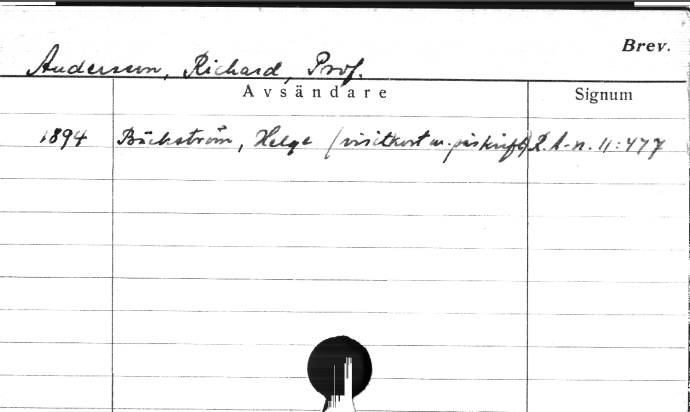 Brev.
Andersson, Richard, Prof.
Avsändare Signum
1894 Bäckström, Helge (visitkort m. påskrift) R. A-n. 11:477